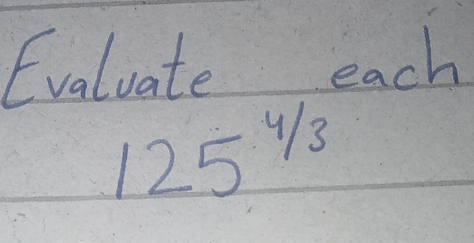 Evaluate each
125^4/3